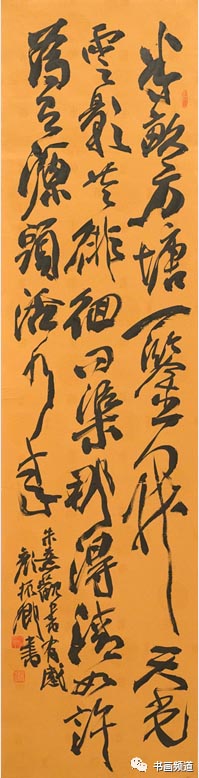 半畝方塘一鑒開天光
雲影共徘徊問渠那得清如許
為有源頭活水來
朱熹觀書有感
顏振卿書
书画频道